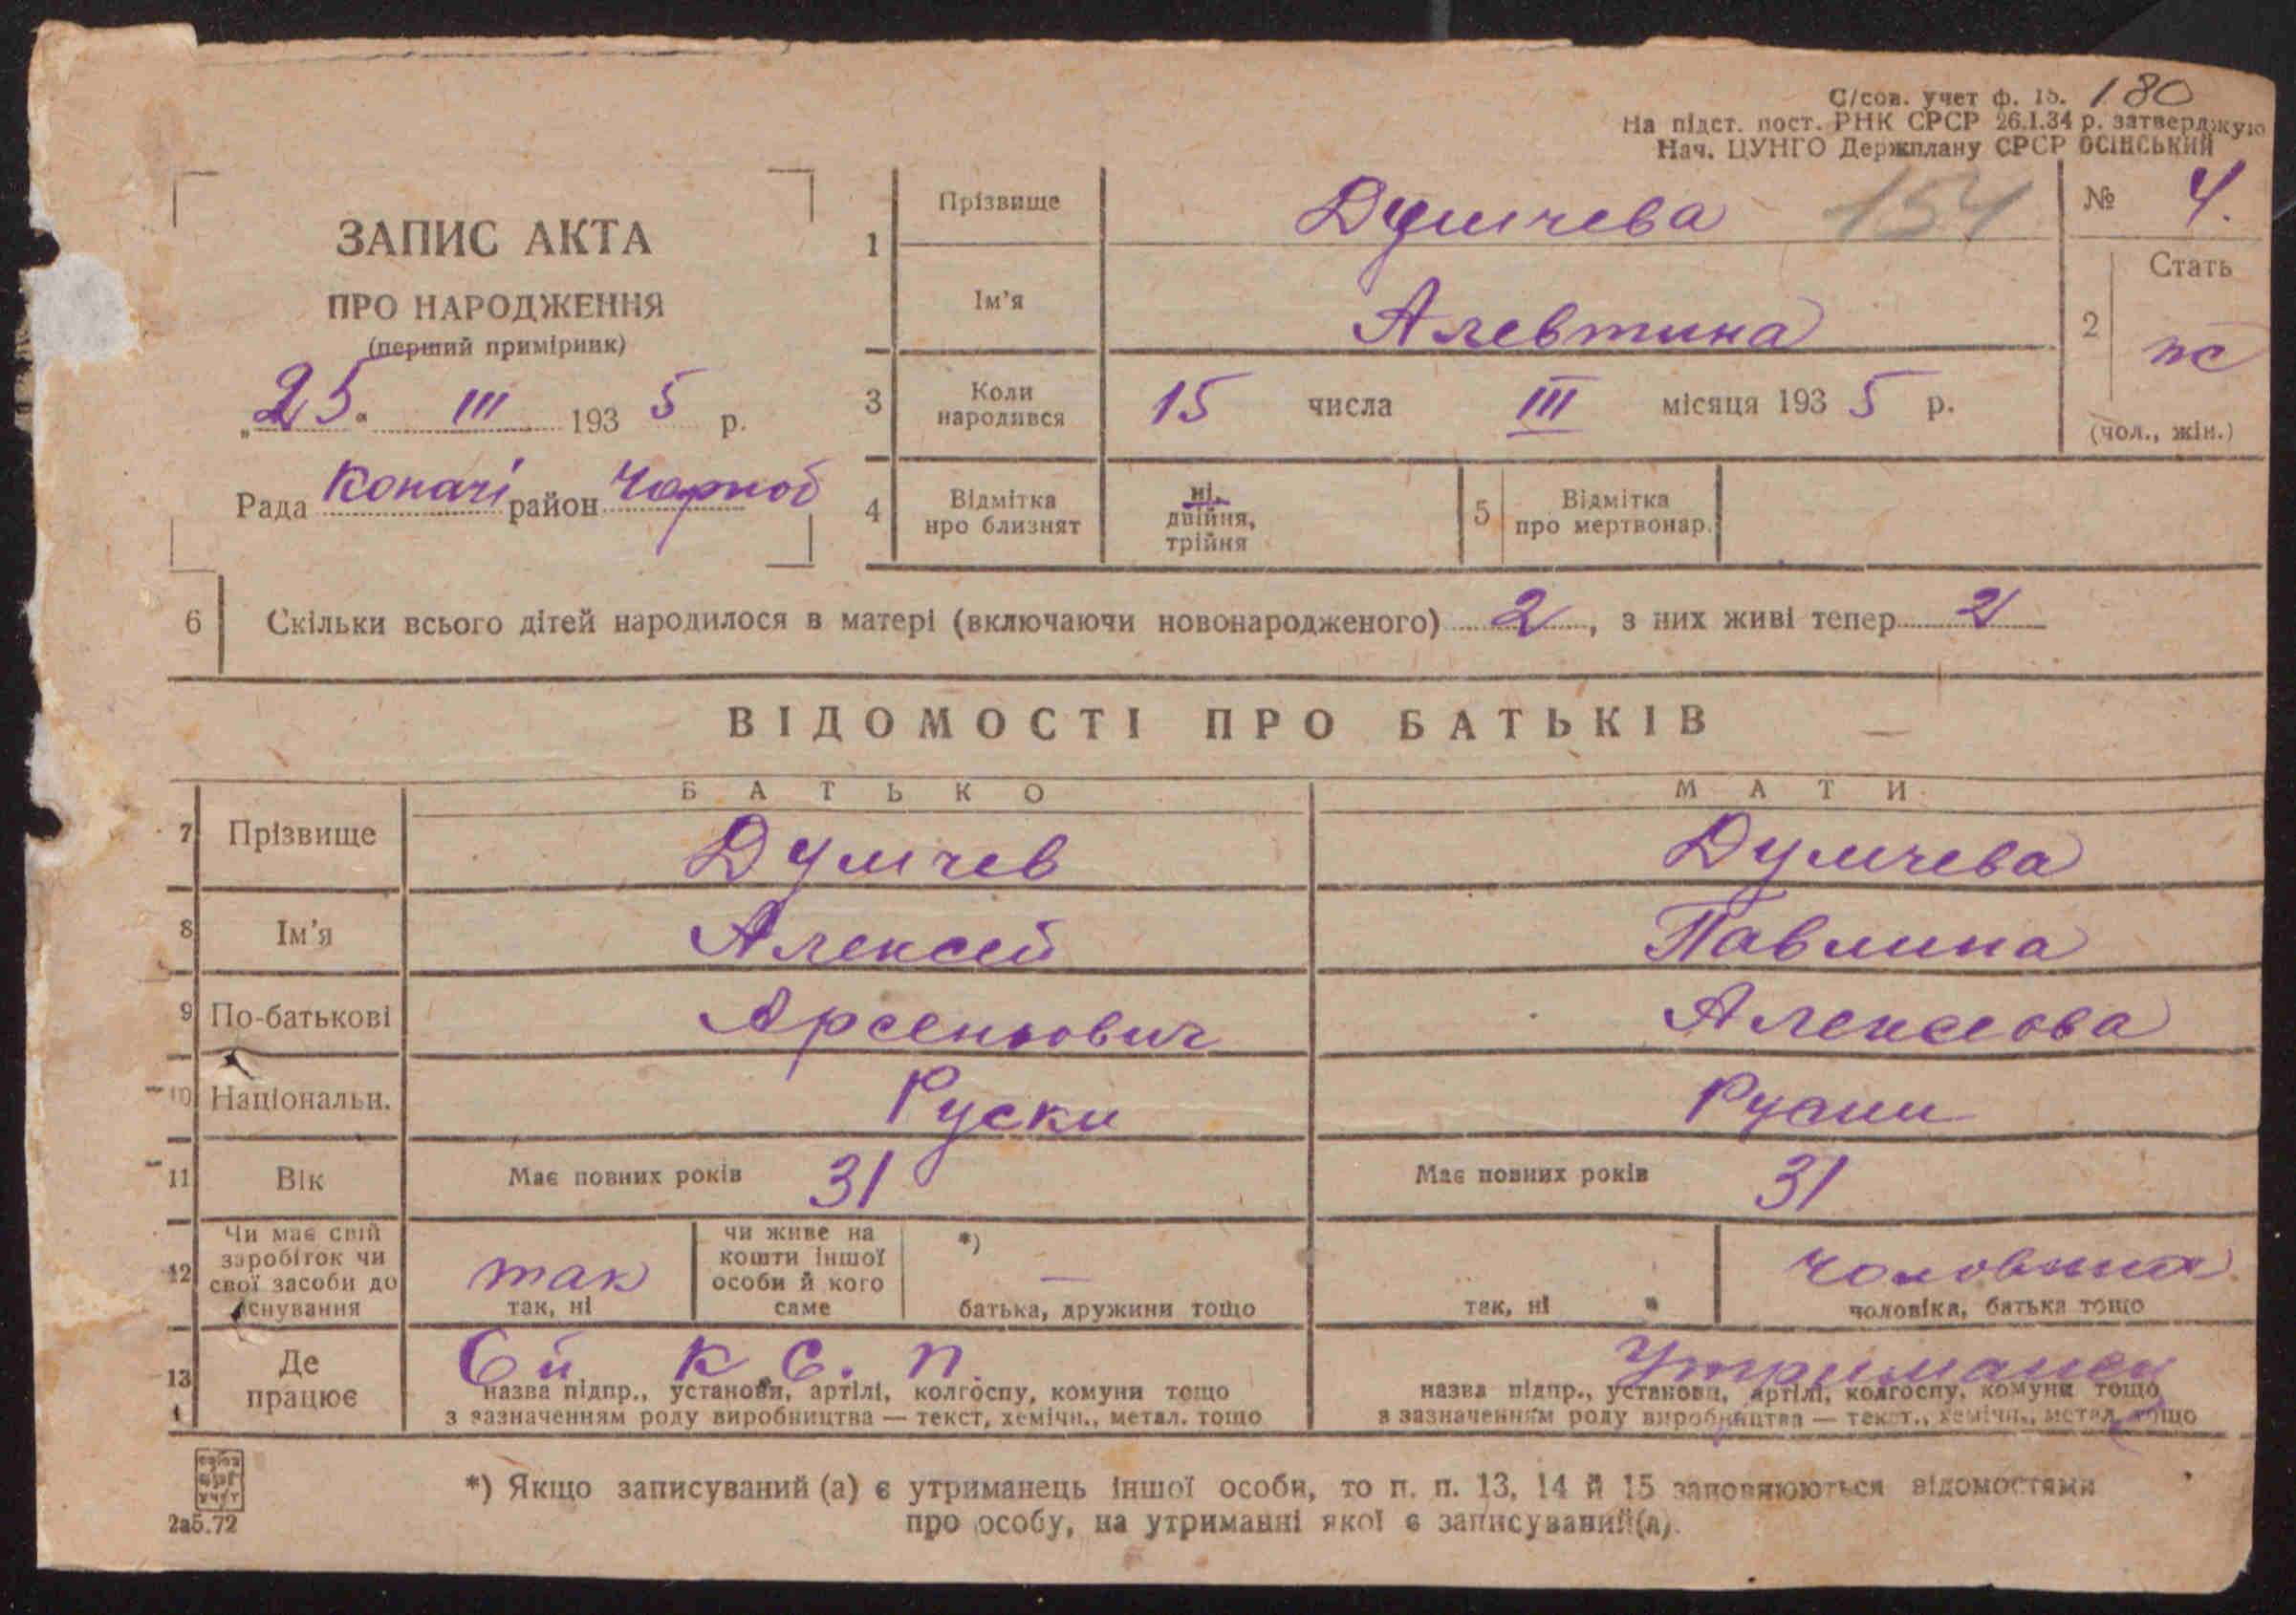 С/сов. учет ф. 15. 180
На підст. пост. РНК СРСР 26.I.34 р. затверджую
Нач. ЦУНГО Держплану СРСР ОСІНСЬКИЙ
ЗАПИС АКТА
ПРО НАРОДЖЕННЯ
(перший примірник)
„25“ III 1935 р.
Рада Копачі район Чорноб
1 Прізвище Думчева 154
Ім’я Алевтина
№ 4.
2 Стать
жс
(чол., жін.)
3 Коли народився 15 числа III місяця 1935 р.
4 Відмітка про близнят ні, двійня, трійня
5 Відмітка про мертвонар.
6 Скільки всього дітей народилося в матері (включаючи новонародженого) 2, з них живі тепер 2
ВІДОМОСТІ ПРО БАТЬКІВ
БАТЬКО МАТИ
7 Прізвище Думчев Думчева
8 Ім’я Алексей Павлина
9 По-батькові Арсеньович Алексеова
10 Національн. Руски Руски
11 Вік Має повних років 31 Має повних років 31
12 Чи має свій заробіток чи свої засоби до існування
так
так, ні
чи живе на кошти іншої особи й кого саме
*) —
батька, дружини тощо
так, ні
чоловіка, батька тощо
13 Де працює
К. С. П.
назва підпр., установи, артілі, колгоспу, комуни тощо
з зазначенням роду виробництва — текст, хемічн., метал. тощо
назва підпр., установи, артілі, колгоспу, комуни тощо
з зазначенням роду виробництва — текст., хемічн., метал. тощо
2аб.72
*) Якщо записуваний (а) є утриманець іншої особи, то п. п. 13, 14 й 15 заповнюються відомостями
про особу, на утриманні якої є записуваний(а).